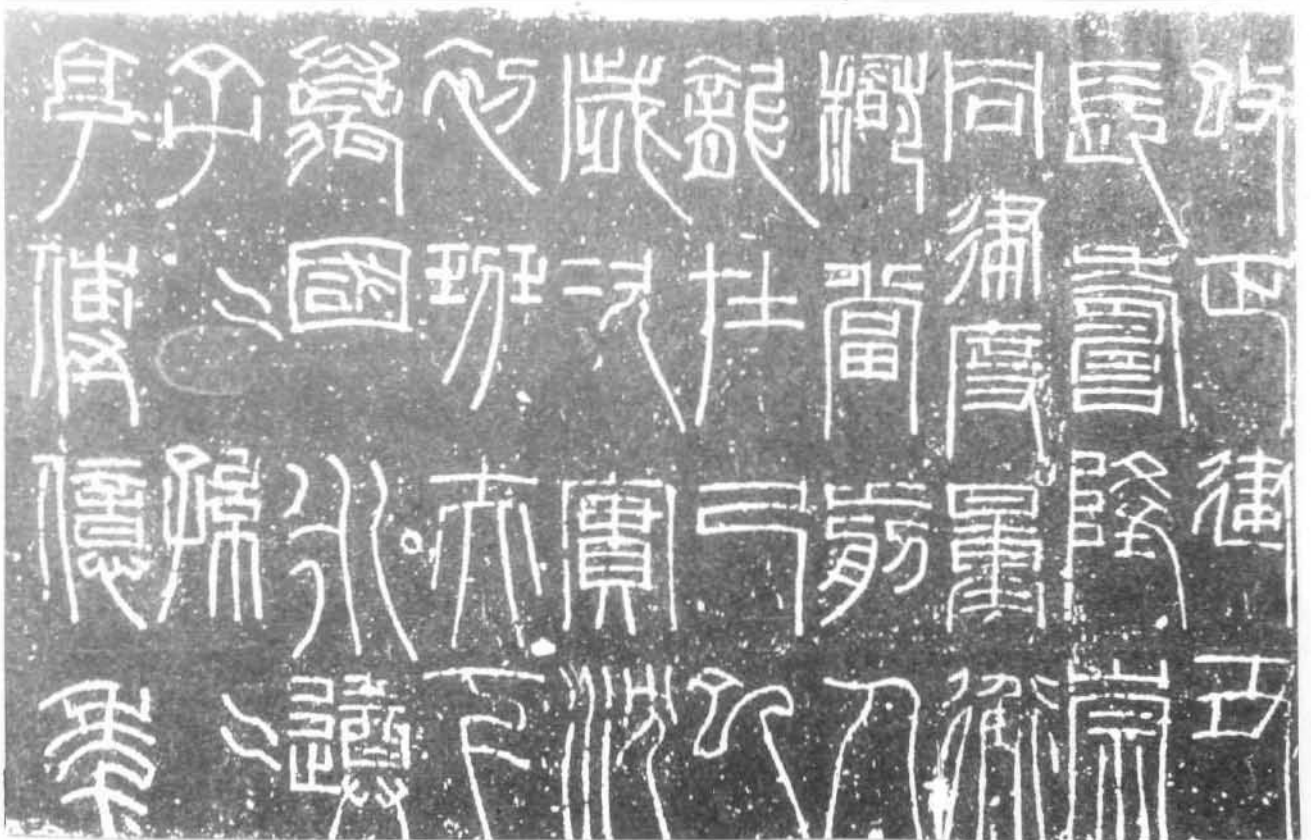 改正建丑
長壽隆崇
同律度量衡
稽當前人
龍在己巳
歲次實沈
初班天下
萬國永遵
子〻孫〻
享傳億年